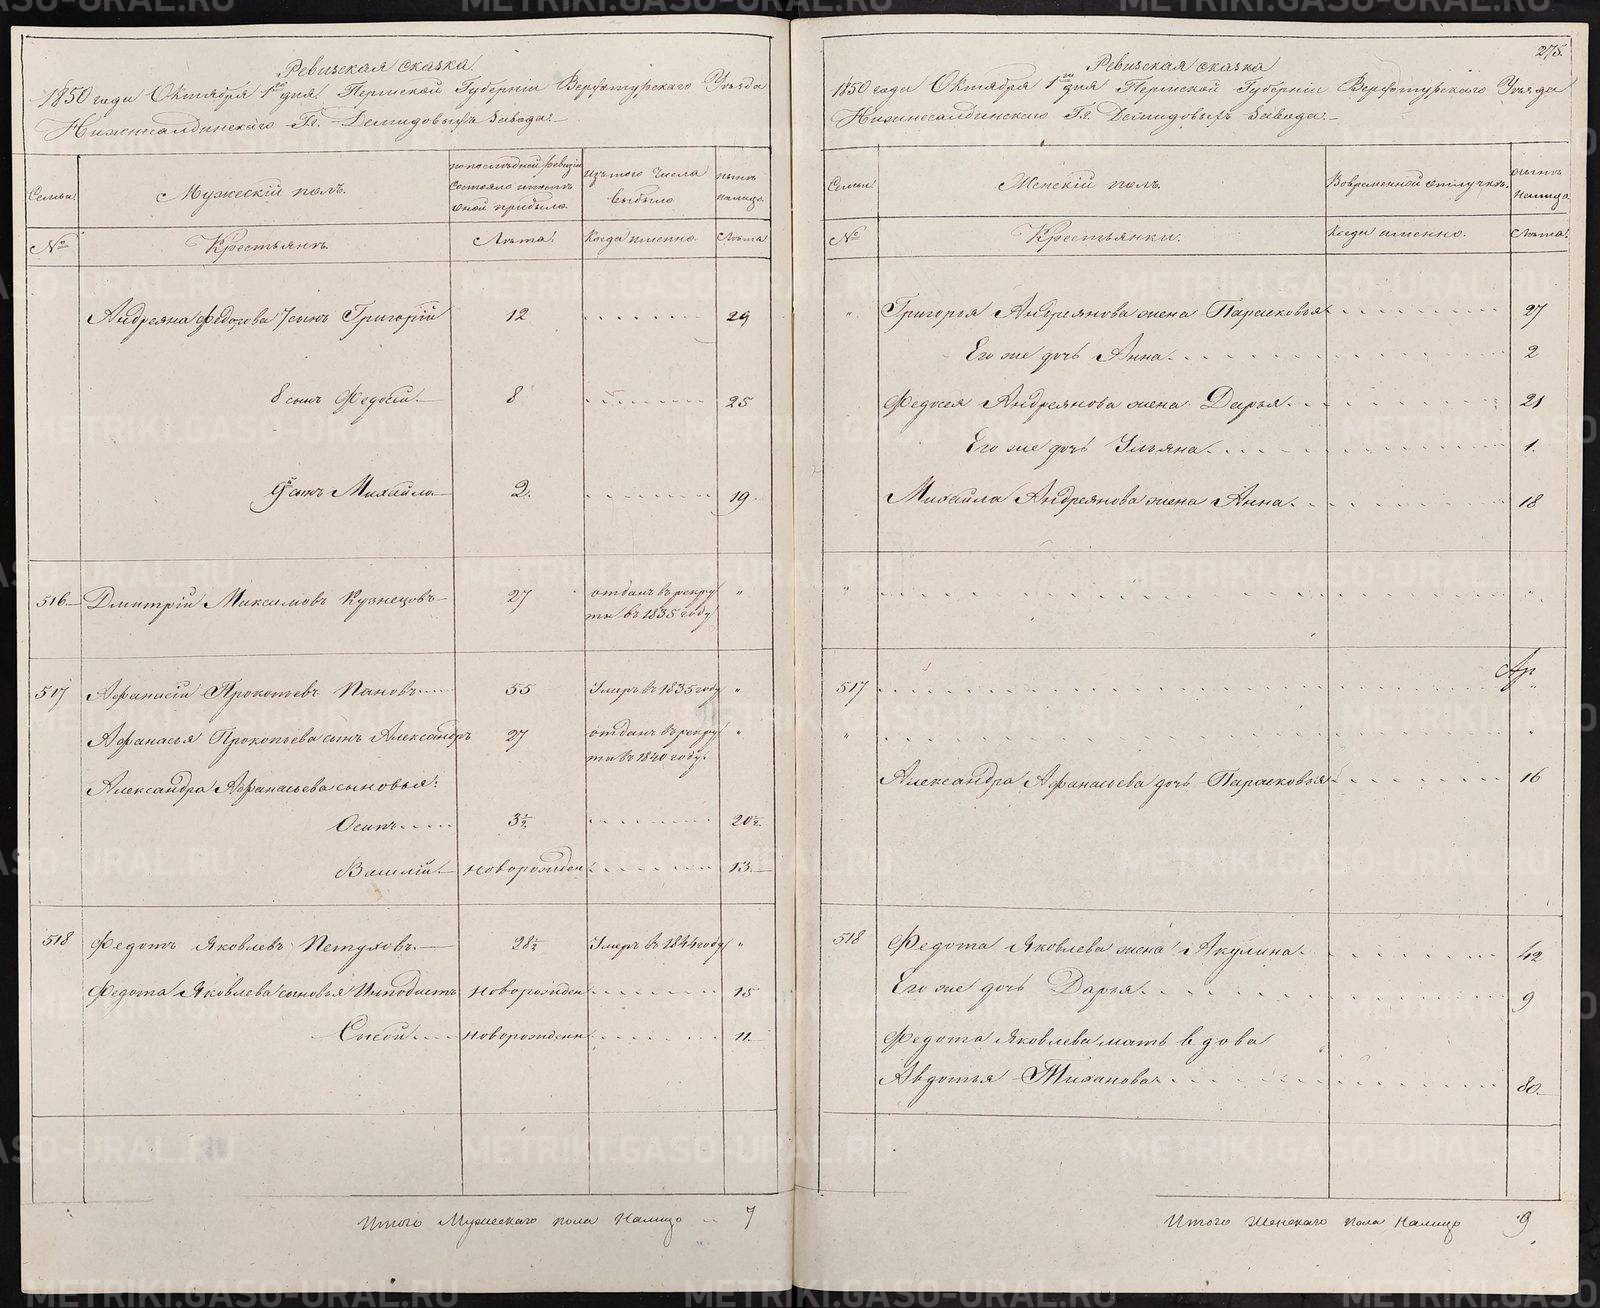 Ревизская сказка
1850 года Октября 1го дня Пермской Губернiи Верхотурскаго Уѣзда
Нижнесалдинскаго Гг. Демидовыхъ Завода.
Семьи.
Мужескiй полъ.
по послѣдней ревизiи
состояло и послѣ
оной прибыло
изъ того числа
выбыло
нынѣ
налицо.
№
Крестьянъ
Лѣта.
Когда именно.
Лѣта
Андреяна Федорова 7 сынъ Григорiй 12 29
8 сынъ Федосѣй. 8 25
9й сынъ Михайло 2. 19
516 Дмитрiй Максимовъ Кузнецовъ 27 отданъ въ рекру „
ты въ 1835 году
517 Афанасiй Прокопьевъ Пановъ 55 Умеръ въ 1835 году „
Афанасья Прокопьева сынъ Александръ 27 отданъ въ рекру „
ты въ 1840 году.
Александра Афанасьева сыновья:
Осипъ 3½ 20½
Василiй. Новорожден 13.
518 Федотъ Яковлевъ Петуховъ. 28½ Умеръ въ 1844 году „
Федота Яковлева сыновья Новорожден 15
Сысой Новорожденн 11.
Итого Мужескаго пола Налицо 7
275.
Ревизская сказка
1850 года Октября 1го дня Пермской Губернiи Верхотурскаго Уѣзда
Нижнесалдинскаго Гг. Демидовыхъ Завода.
Семьи.
Женскiй полъ.
Во временной отлучкѣ.
нынѣ
налицо.
№
Крестьянки.
Когда именно.
Лѣта.
„ Григорья Андреянова жена Парасковья 27
Его же дочь Анна. 2
Федосея Андреянова жена Дарья. 21
Его же дочь Ульяна. 1.
Михайла Андреянова жена Анна. 18
„ „
517 „
„ „
Александра Афанасьева дочь Парасковья 16
518 Федота Яковлева жена Акулина. 42
Его же дочь Дарья. 9
Федота Яковлева мать вдова
Авдотья 80.
Итого Женскаго пола Налицо 9
METRIKI.GASO-URAL.RU